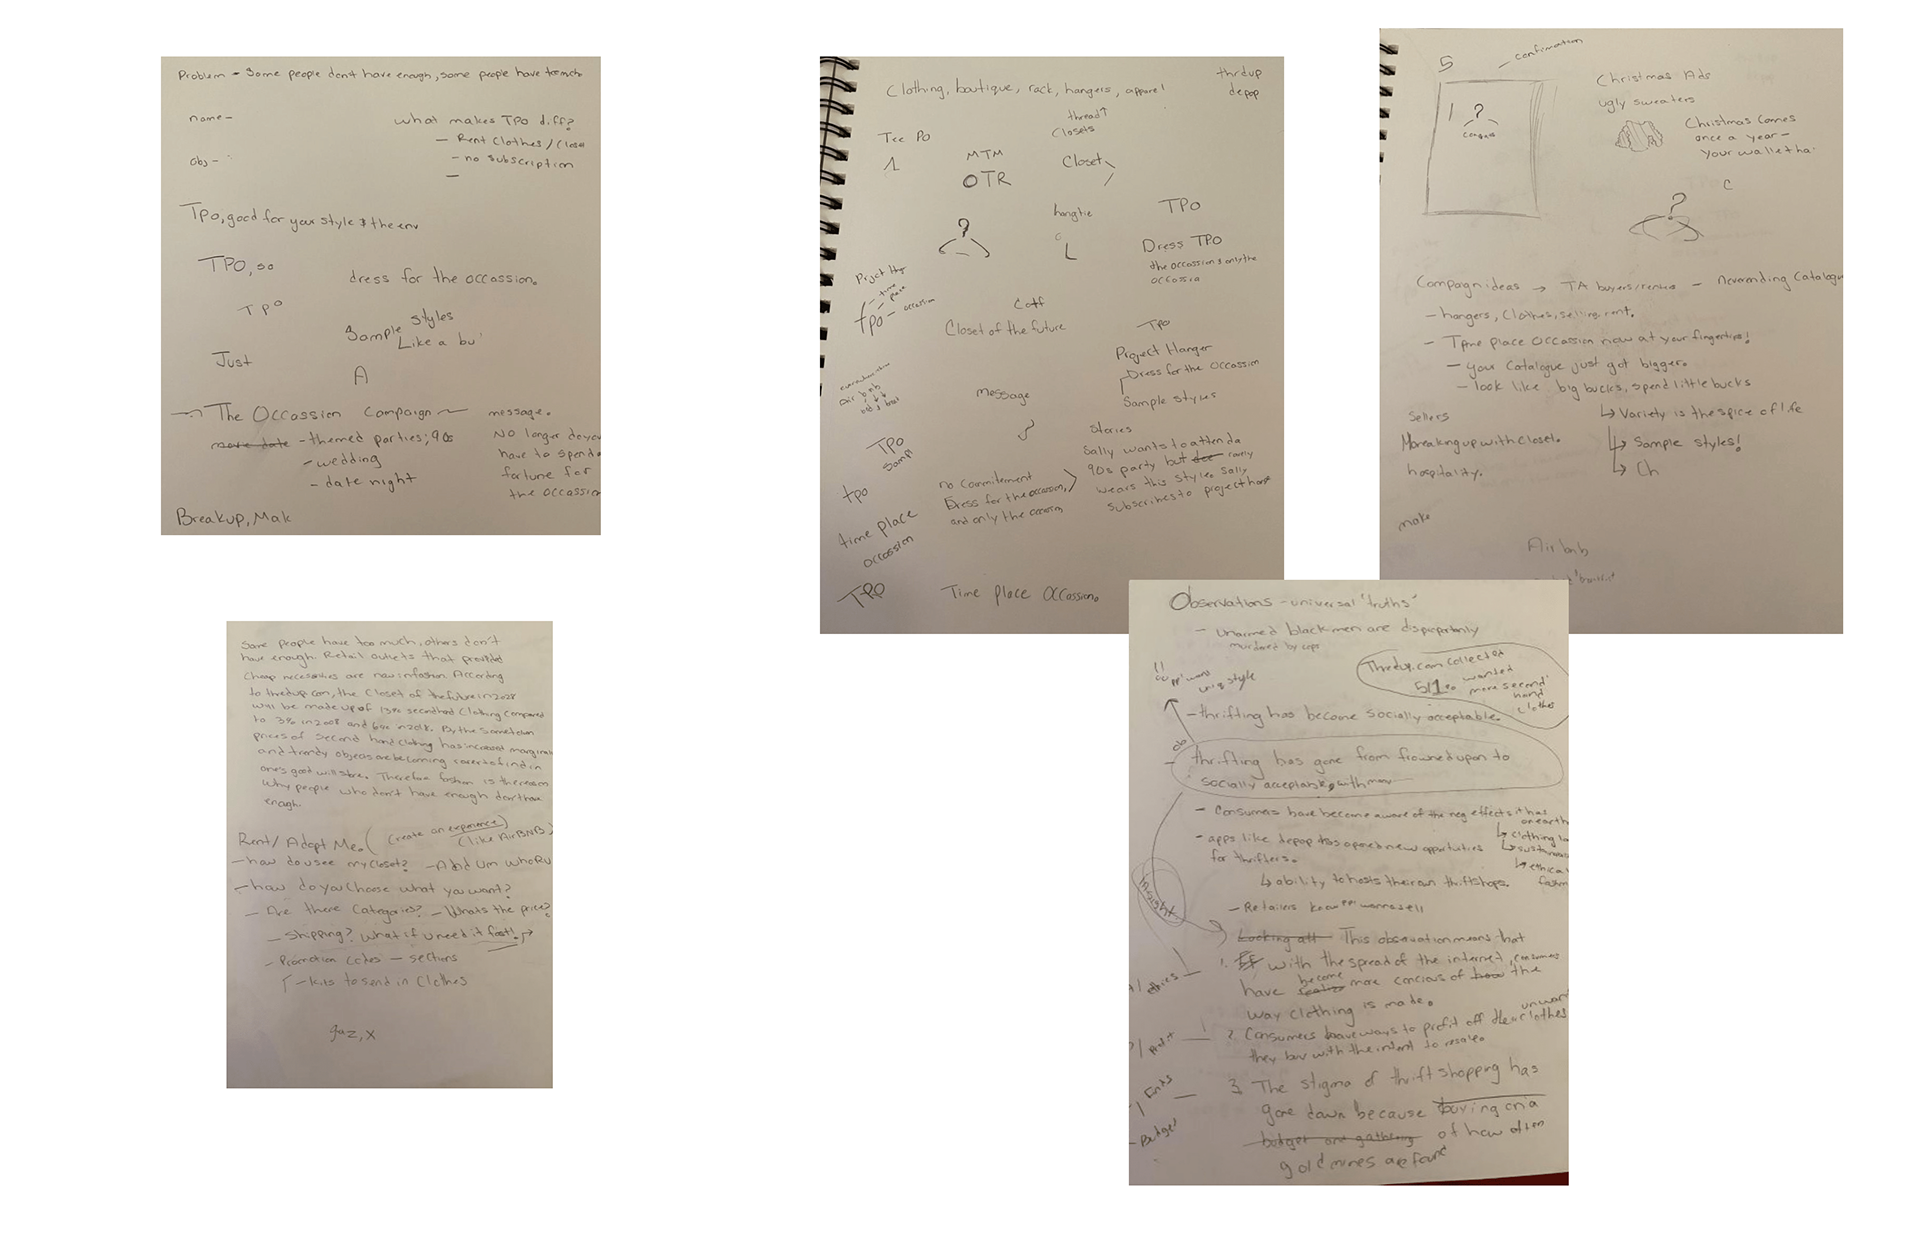 Problem - Some people don't have enough, some people have too much
name -
what makes TPO diff?
- Rent Clothes / Closet
obj -
- no subscription
-
TPO, good for your style & the env
TPO, so
dress for the occassion.
TPO
Sample styles
Like a bu
Just
A
The Occassion Campaign
message.
- themed parties; 90s
- wedding
- date night
NO longer do you
have to spend a
fortune for
the occassion
Breakup, Mak
Clothing, boutique, rack, hangers, apparel
thrdup
depop
thread
Tee PO
Closets
MTM
OTR
Closet
hangtie
TPO
Dress TPO
the occassion & only the
occassion
time
place
occassion
TPO
Closet of the future
TPO
Project Hanger
Dress for the occassion
Sample styles
air bnb
message
Stories
TPO
Sampl
Sally wants to attend a
90s party but rarely
wears this style. Sally
subscribes to project hang
no commitement
Dress for the occassion,
and only the occassion
tpo
time place
occassion
TPO
Time place Occassion.
5
- confirmation
?
Congrats
Christmas Ads
ugly sweaters
Christmas comes
once a year -
your wallet ha
C
Campaign ideas → TA buyers/renters - Neverending Catalogue
- hangers, clothes, selling, rent.
- Time place occasion now at your fingertips!
- your catalogue just got bigger.
- look like big bucks, spend little bucks
↳ Variety is the spice of life
↳ Sample styles!
↳ Ch
Sellers
breaking up with closet.
hospitality.
make
Airbnb
Some people have too much, others don't
have enough. Retail outlets that provided
cheap necessities are now infashion. According
to thredup.com, the closet of the future in 2028
will be made up of 13% secondhand clothing compared
to 3% in 2008 and 6% in 2018. By the same token
prices of second hand clothing has increased marginal
and trendy objects are becoming rarer to find in
one's good will store. Therefore fashion is the reason
why people who don't have enough don't have
enough.
Rent/Adopt Me. (create an experience)
(like AIRBNB)
- how do u see my closet? - Add um who R U
- how do you choose what you want?
- Are there categories? - Whats the price?
- Shipping? What if u need it fast!
- Promotion codes - sections
- kits to send in clothes
gaz, x
Observations - universal 'truths'
- unarmed black men are disproportanly
murdered by cops
Thredup.com collected
51% wanted
more second
hand
clothes
ppl want
uniq style
- thrifting has become socially acceptable.
ob
- thrifting has gone from frowned upon to
socially acceptable, with
- Consumers have become aware of the neg effects it has
on earth
- apps like depop has opened new opportunities
for thrifters.
↳ ability to hosts their own thriftshops.
↳ ethical
fashion
- Retailers know ppl wanna sell
Insight
Looking at This observation means that
1. with the spread of the internet, consumers
have become more concious of the
way clothing is made.
2. Consumers have ways to profit off their clothes
they buy with the intent to resale.
3. The stigma of thrift shopping has
gone down because buying on a
budget one gathering of how often
gold mines are found
ethics
Profit
Finds
Budget